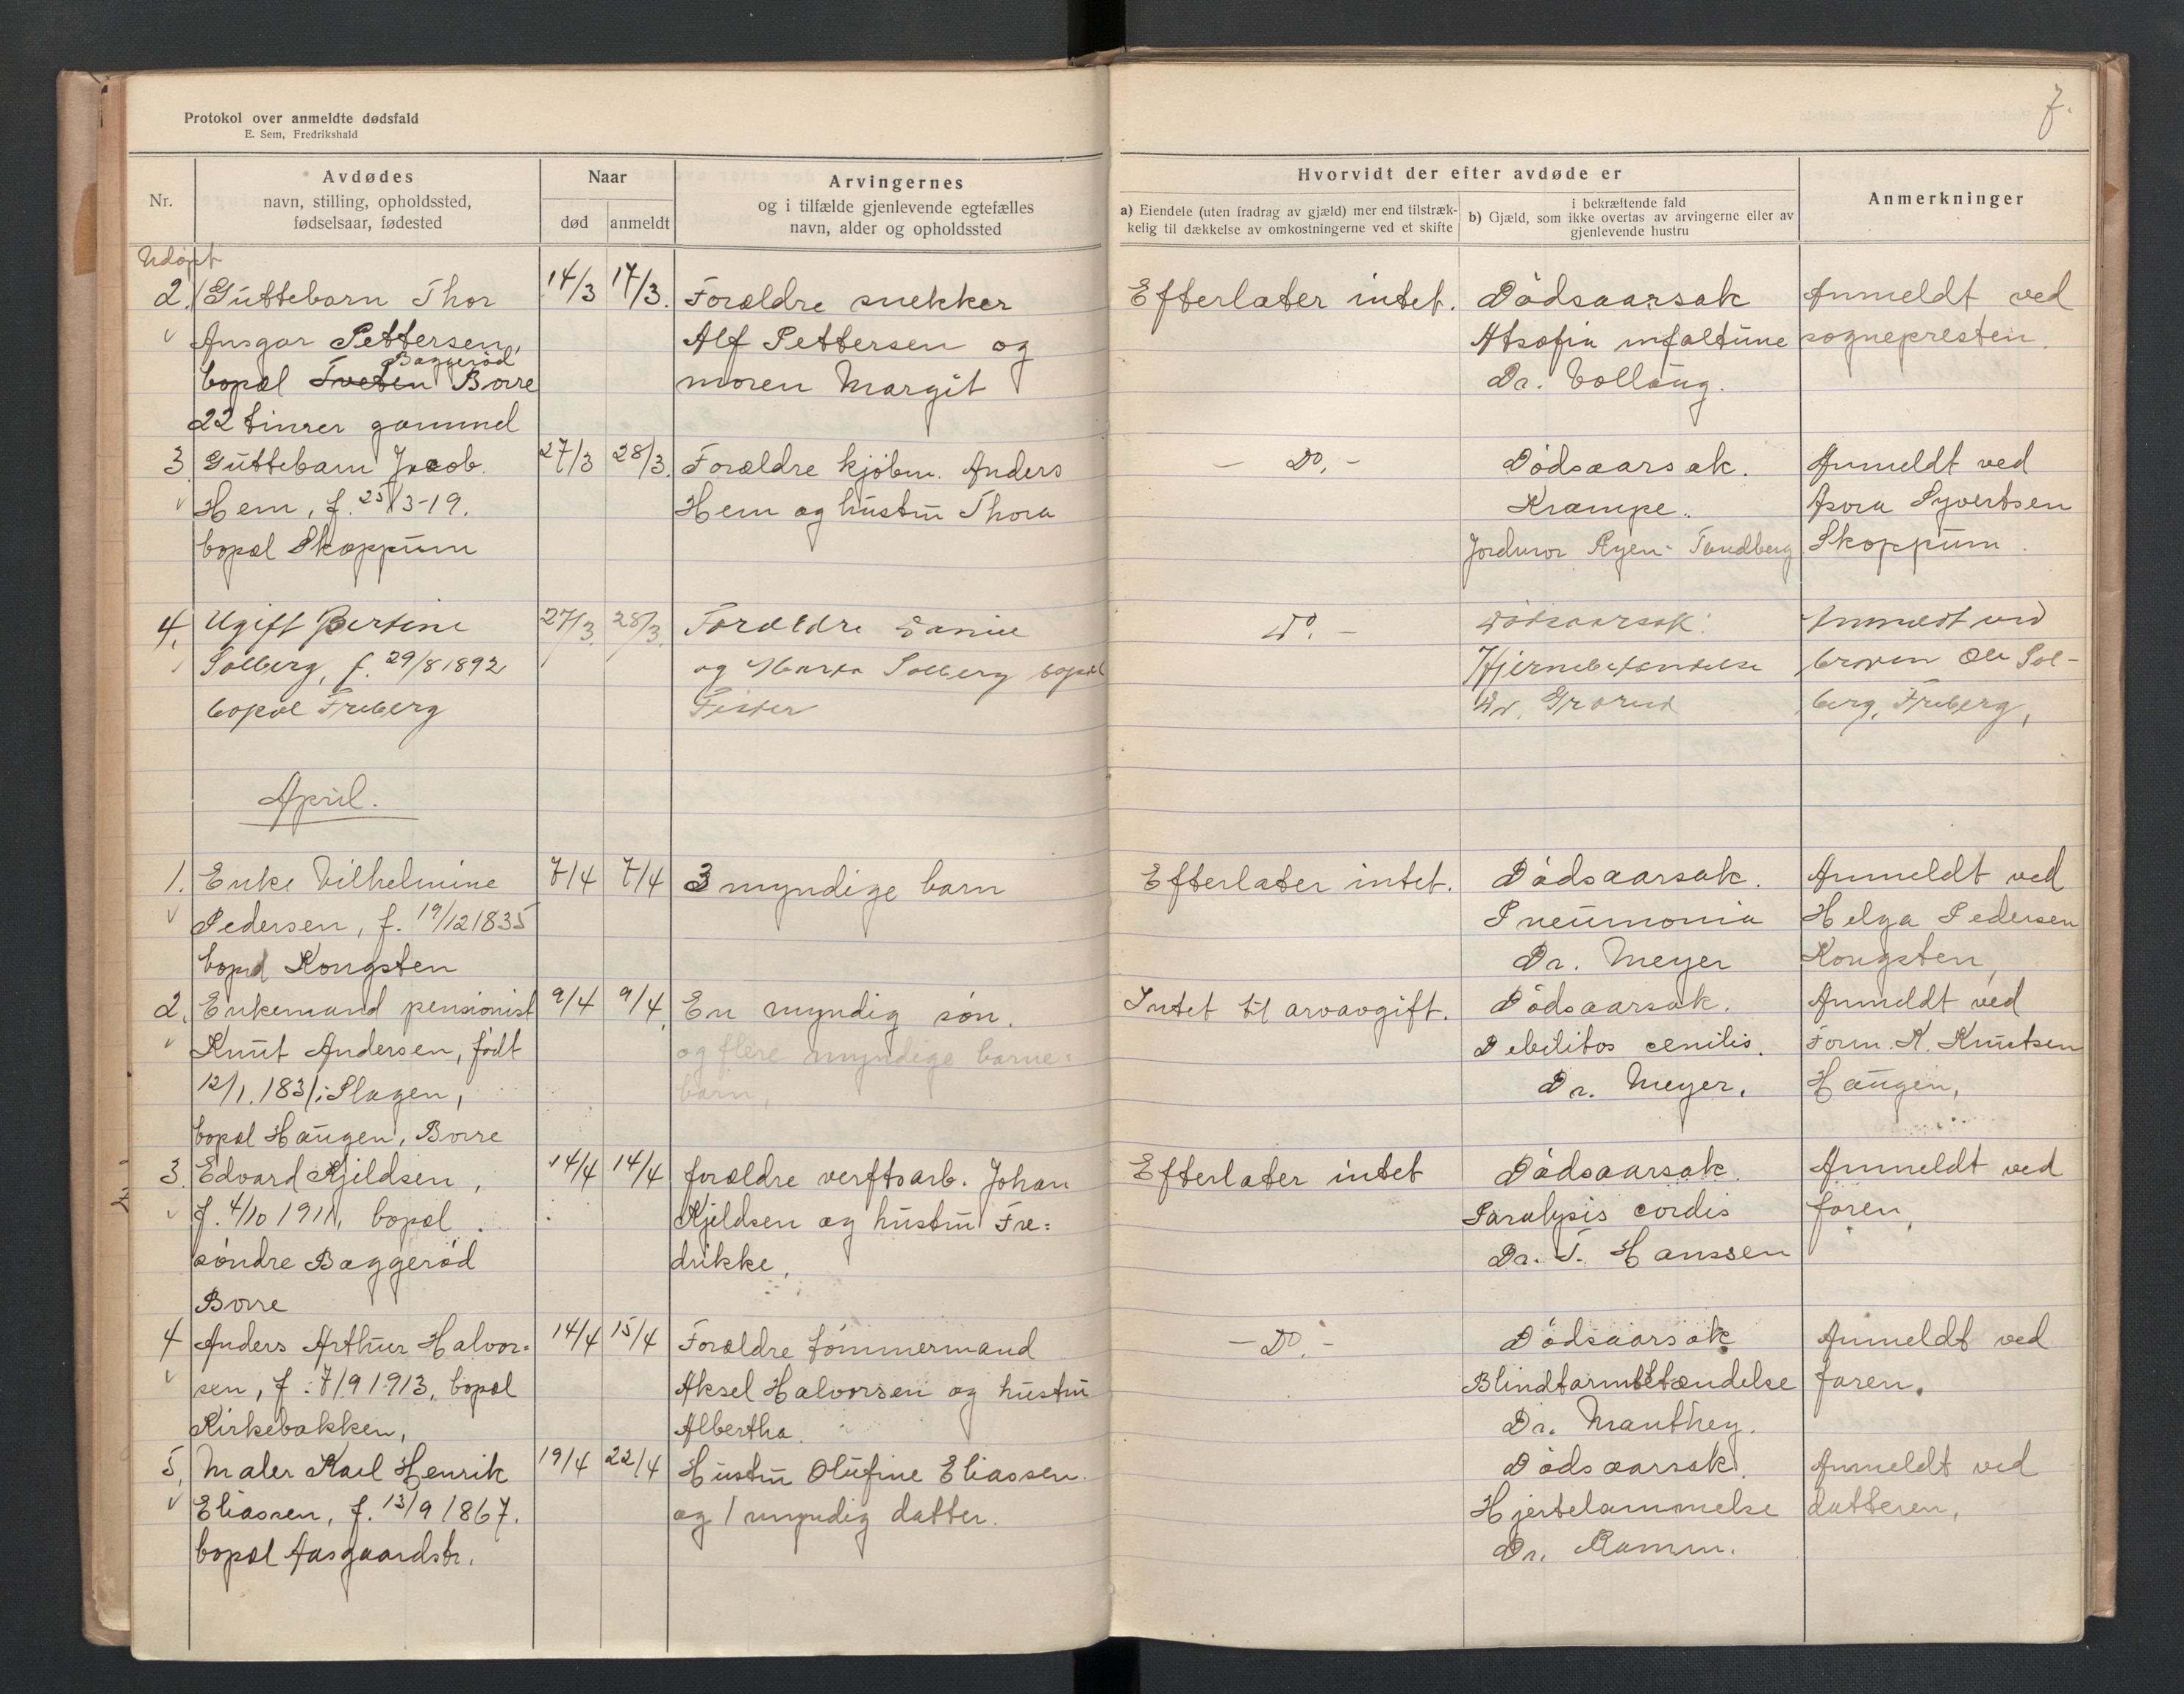 Protokol over anmeldte dødsfald
E. Sem, Fredrikshald
7.
Nr.
Avdødes
navn, stilling, opholdssted,
fødselsaar, fødested
Naar
død
anmeldt
Arvingernes
og i tilfælde gjenlevende egtefælles
navn, alder og opholdssted
Hvorvidt der efter avdøde er
a) Eiendele (uten fradrag av gjæld) mer end tilstræk-
kelig til dækkelse av omkostningerne ved et skifte
i bekræftende fald
b) Gjæld, som ikke overtas av arvingerne eller av
gjenlevende hustru
Anmerkninger
Udøpt
2. Guttebarn Thor 14/3 17/3. Forældre snekker Efterlater intet. Dødsaarsak Anmeldt ved
Ansgar Pettersen, Alf Pettersen og sognepresten.
Baggerød
bopæl Tveten Borre moren Margit Dr.
22 timer gammel
3 Guttebarn Jacob. 27/3 28/3. Forældre kjøbm. Anders - Do. - Dødsaarsak. Anmeldt ved
Hem, f. 25/3-19. Hem og hustru Thora Krampe. Syvertsen
bopæl Skoppum Jordmor Ryen-Tandberg Skoppum.
4. Ugift Bertine 27/3. 28/3. Forældre Daniel Do. - Dødsaarsak: Anmeldt ved
Solberg, f. 29/8 1892 og Solberg bopæl Hjernebetændelse broren Ole Sol-
bopæl Freberg Fister Dr. Grorud berg, Freberg,
April.
1. Enke Vilhelmine 7/4 7/4 3 myndige barn Efterlater intet. Dødsaarsak. Anmeldt ved
Pedersen, f. 19/12 1835 Pneumonia Helga Pedersen
bopæl Kongsten Dr. Meyer Kongsten,
2. Enkemand pensionist 9/4 9/4. En myndig søn. Intet til arvavgift. Dødsaarsak. Anmeldt ved
Knut Andersen, født og flere myndige barne= Debilitos cenilis. Form. K. Knutsen
12/1. 1831 i Slagen, barn, Dr. Meyer. Haugen,
bopæl Haugen, Borre
3. Edvard Kjeldsen, 14/4 14/4 forældre verftsarb. Johan Efterlater intet Dødsaarsak. Anmeldt ved
f. 4/10 1911, bopæl Kjeldsen og hustru Fre= Paralysis cordis faren,
søndre Baggerød drikke, Dr. T. Hanssen
Borre
4 Anders Arthur Halvor= 14/4 15/4 Forældre tømmermand - Do. - Dødsaarsak Anmeldt ved
sen, f. 7/9 1913, bopæl Aksel Halvorsen og hustru Blindtarmbetændelse faren.
Kirkebakken, Albertha. Dr. Manthey.
5, Maler Karl Henrik 19/4 22/4 Hustru Olufine Eliassen. Dødsaarsak. Anmeldt ved
Eliassen, f. 13/9 1867. og 1 myndig datter. Hjertelammelse datteren,
bopæl Aasgaardstr. Dr. Ramm.